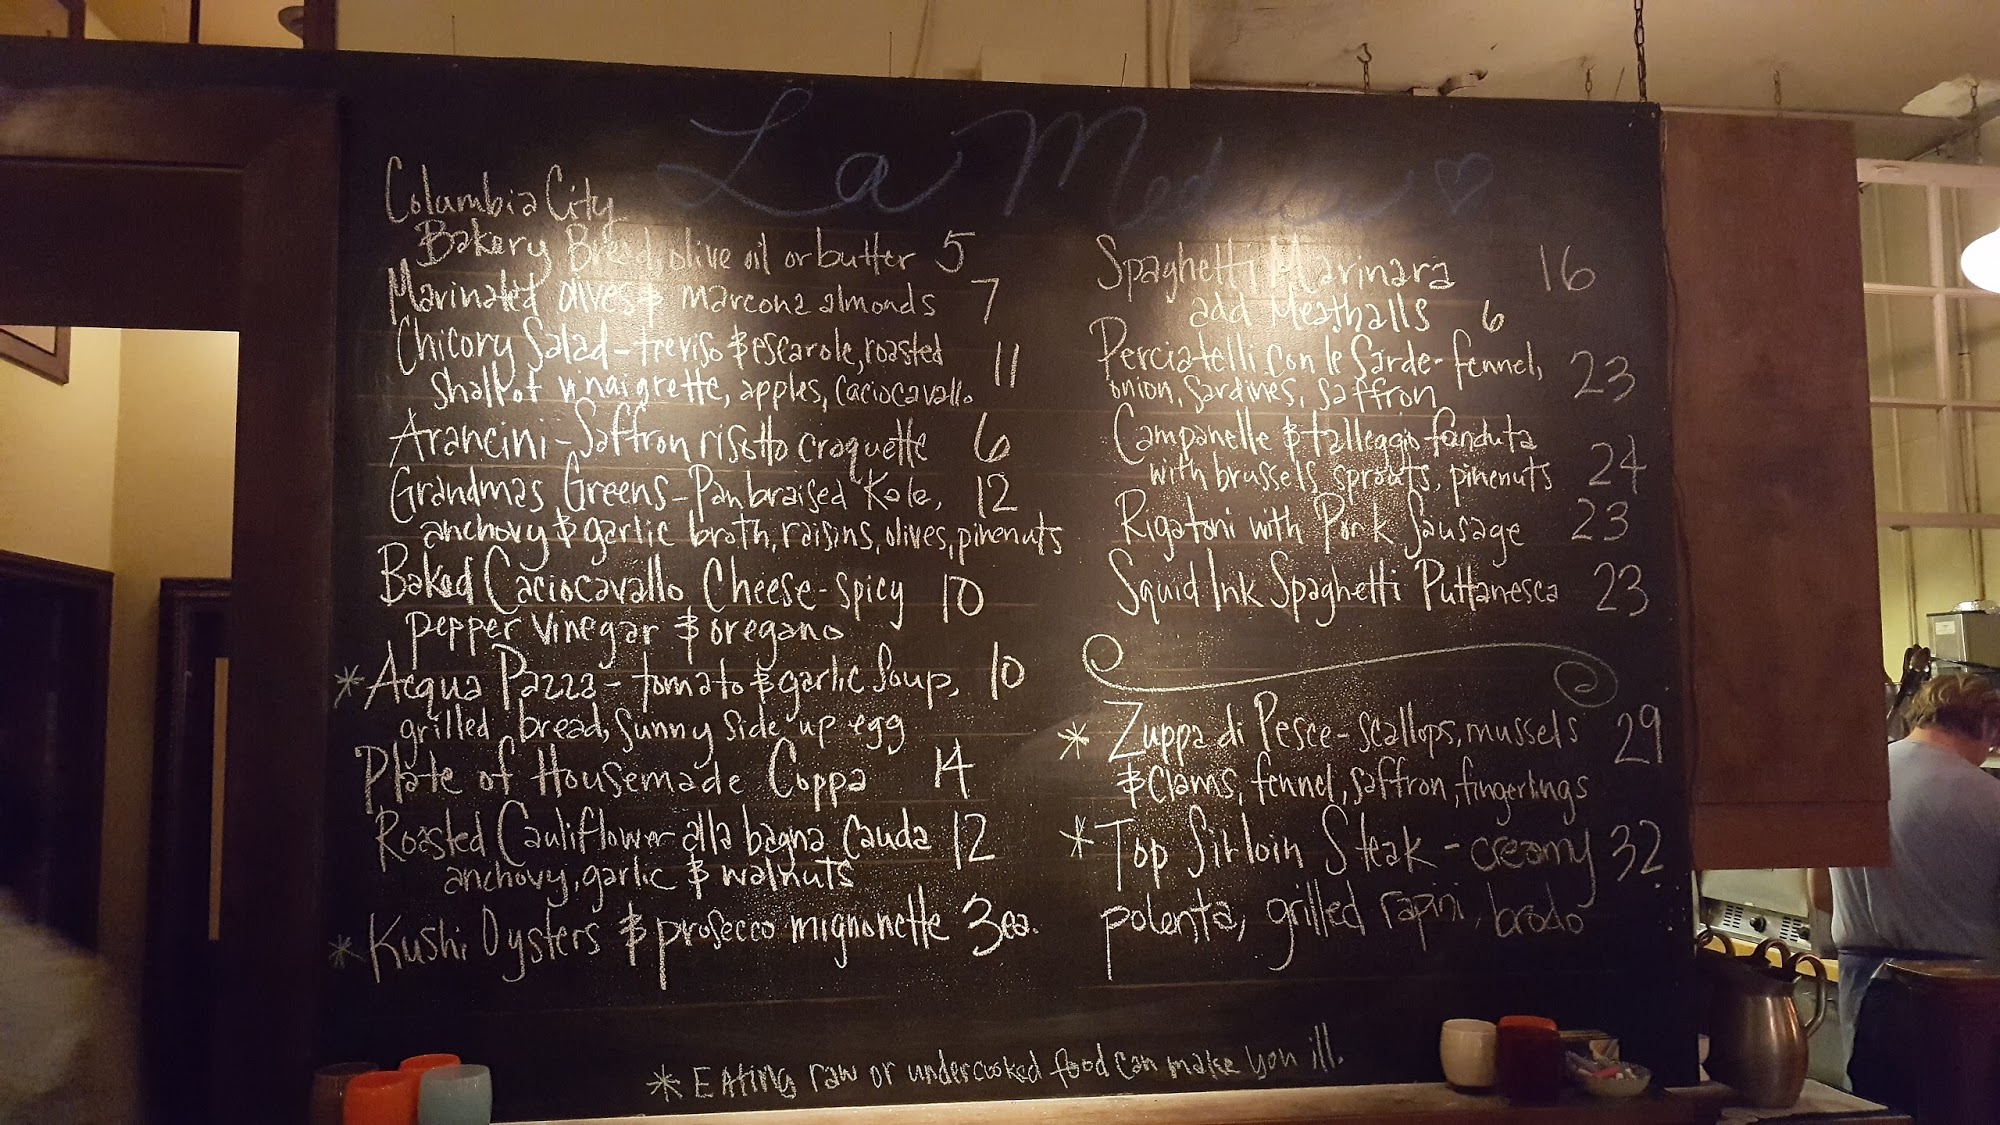 La Medusa
Columbia City
Bakery Bread, olive oil or butter 5
Marinated olives & marcona almonds 7
Chicory Salad - treviso & escarole, roasted 11
shallot vinaigrette, apples, caciocavallo
Arancini - Saffron risotto croquette 6
Grandmas Greens - Pan braised Kale, 12
anchovy & garlic broth, raisins, olives, pinenuts
Baked Caciocavallo Cheese - spicy 10
pepper vinegar & oregano
* Acqua Pazza - tomato & garlic Soup, 10
grilled bread, sunny side up egg
Plate of Housemade Coppa 14
Roasted Cauliflower alla bagna cauda 12
anchovy, garlic & walnuts
* Kushi Oysters & prosecco mignonette 3ea.
Spaghetti Marinara 16
add Meatballs 6
Perciatelli con le Sarde - fennel, 23
onion, sardines, saffron
Campanelle & talleggio fonduta 24
with brussels, sprouts, pinenuts
Rigatoni with Pork Sausage 23
Squid Ink Spaghetti Puttanesca 23
* Zuppa di Pesce - scallops, mussels 29
& Clams, fennel, saffron, fingerlings
* Top Sirloin Steak - creamy 32
polenta, grilled rapini, brodo
* Eating raw or undercooked food can make you ill.